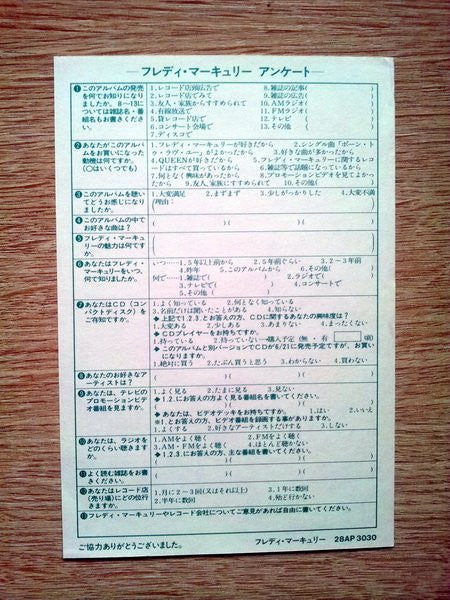 フレディ・マーキュリー アンケート
❶このアルバムの発売を何でお知りになりましたか。8〜13については雑誌名・番組名もお書きください。
1.レコード店頭広告で 8.雑誌の記事( )
2.レコード店でみて 9.雑誌の広告( )
3.友人・家族からすすめられて 10.AMラジオ( )
4.有線放送で 11.FMラジオ( )
5.貸レコード店で 12.テレビ( )
6.コンサート会場で 13.その他( )
7.ディスコで
❷あなたがこのアルバムをお買いになった動機は何ですか。(○はいくつでも)
1.フレディ・マーキュリーが好きだから 2.シングル曲「ボーン・トゥ・ラヴ・ユー」がよかったから 3.好きな曲が多かったから
4.QUEENが好きだから 5.フレディ・マーキュリーに関するレコードはすべて買っているから 6.雑誌等で話題になっているから
7.何となく興味があったから 8.プロモーションビデオを見てよかったから 9.友人、家族にすすめられて 10.その他( )
❸このアルバムを聴いてどうお感じになりましたか。
1.大変満足 2.まずまず 3.少しがっかりした 4.大変不満
(理由: )
❹このアルバムの中でお好きな曲は?
( )( )( )
❺フレディ・マーキュリーの魅力は何ですか。
❻あなたはフレディ・マーキュリーをいつ、何で知りましたか。
いつ……1.5年以上前から 2.5年前ぐらい 3.2〜3年前
4.昨年 5.このアルバムから 6.その他( )
何で……1.雑誌で( ) 2.ラジオで( )
3.テレビで( ) 4.コンサートで
5.その他( )
❼あなたはCD(コンパクトディスク)をご存知ですか。
1.よく知っている 2.何となく知っている
3.名前だけは聞いたことがある 4.知らない
◆上記で1.2.3.とお答えの方、CDに関するあなたの興味度は?
1.大変ある 2.少しある 3.あまりない 4.まったくない
◆CDプレイヤーをお持ちですか。
1.持っている 2.持っていない→購入予定(無 有 頃)
◆このアルバムと別バージョンでCDが6/21に発売予定ですが、お買いになりますか。
1.絶対に買う 2.たぶん買うと思う 3.わからない 4.買わない
❽あなたのお好きなアーティストは?
( )( )( )
❾あなたは、テレビのプロモーションビデオ番組を見ますか。
1.よく見る 2.たまに見る 3.見ない
◆1.2.にお答えの方よく見る番組名を書いてください。
( )( )
◆あなたは、ビデオデッキをお持ちですか。 1.はい 2.いいえ
※1.とお答えの方、ビデオ番組を録画する事がありますか。
1.よくする 2.好きなアーティストだけする 3.しない
❿あなたは、ラジオをどのくらい聴きますか。
1.AMをよく聴く 2.FMをよく聴く
3.AM・FMをよく聴く 4.ほとんど聴かない
◆1.2.3.にお答えの方、主な番組を書いてください。
( )( )
⓫よく読む雑誌をお書きください。
( )( )( )
⓬あなたはレコード店(売り場)にどの位行きますか。
1.月に2〜3回(又はそれ以上) 3.1年に数回
2.半年に数回 4.殆ど行かない
⓭フレディ・マーキュリーやレコード会社についてご意見があれば自由に書いて下さい。
ご協力ありがとうございました。
フレディ・マーキュリー 28AP 3030